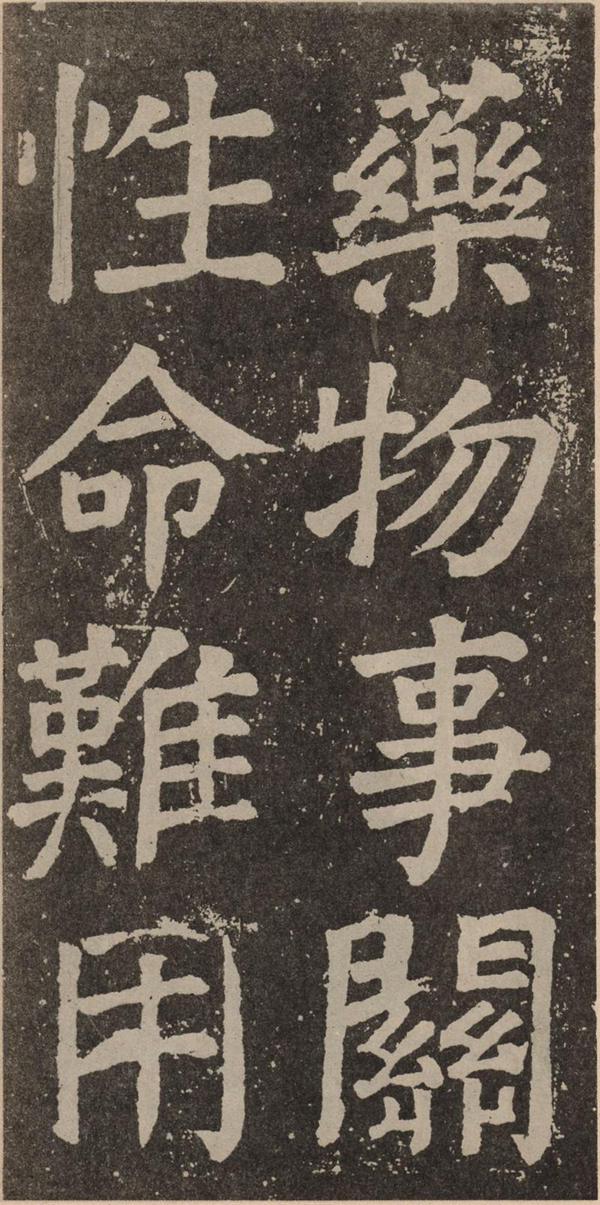 藥物事關
性命難用